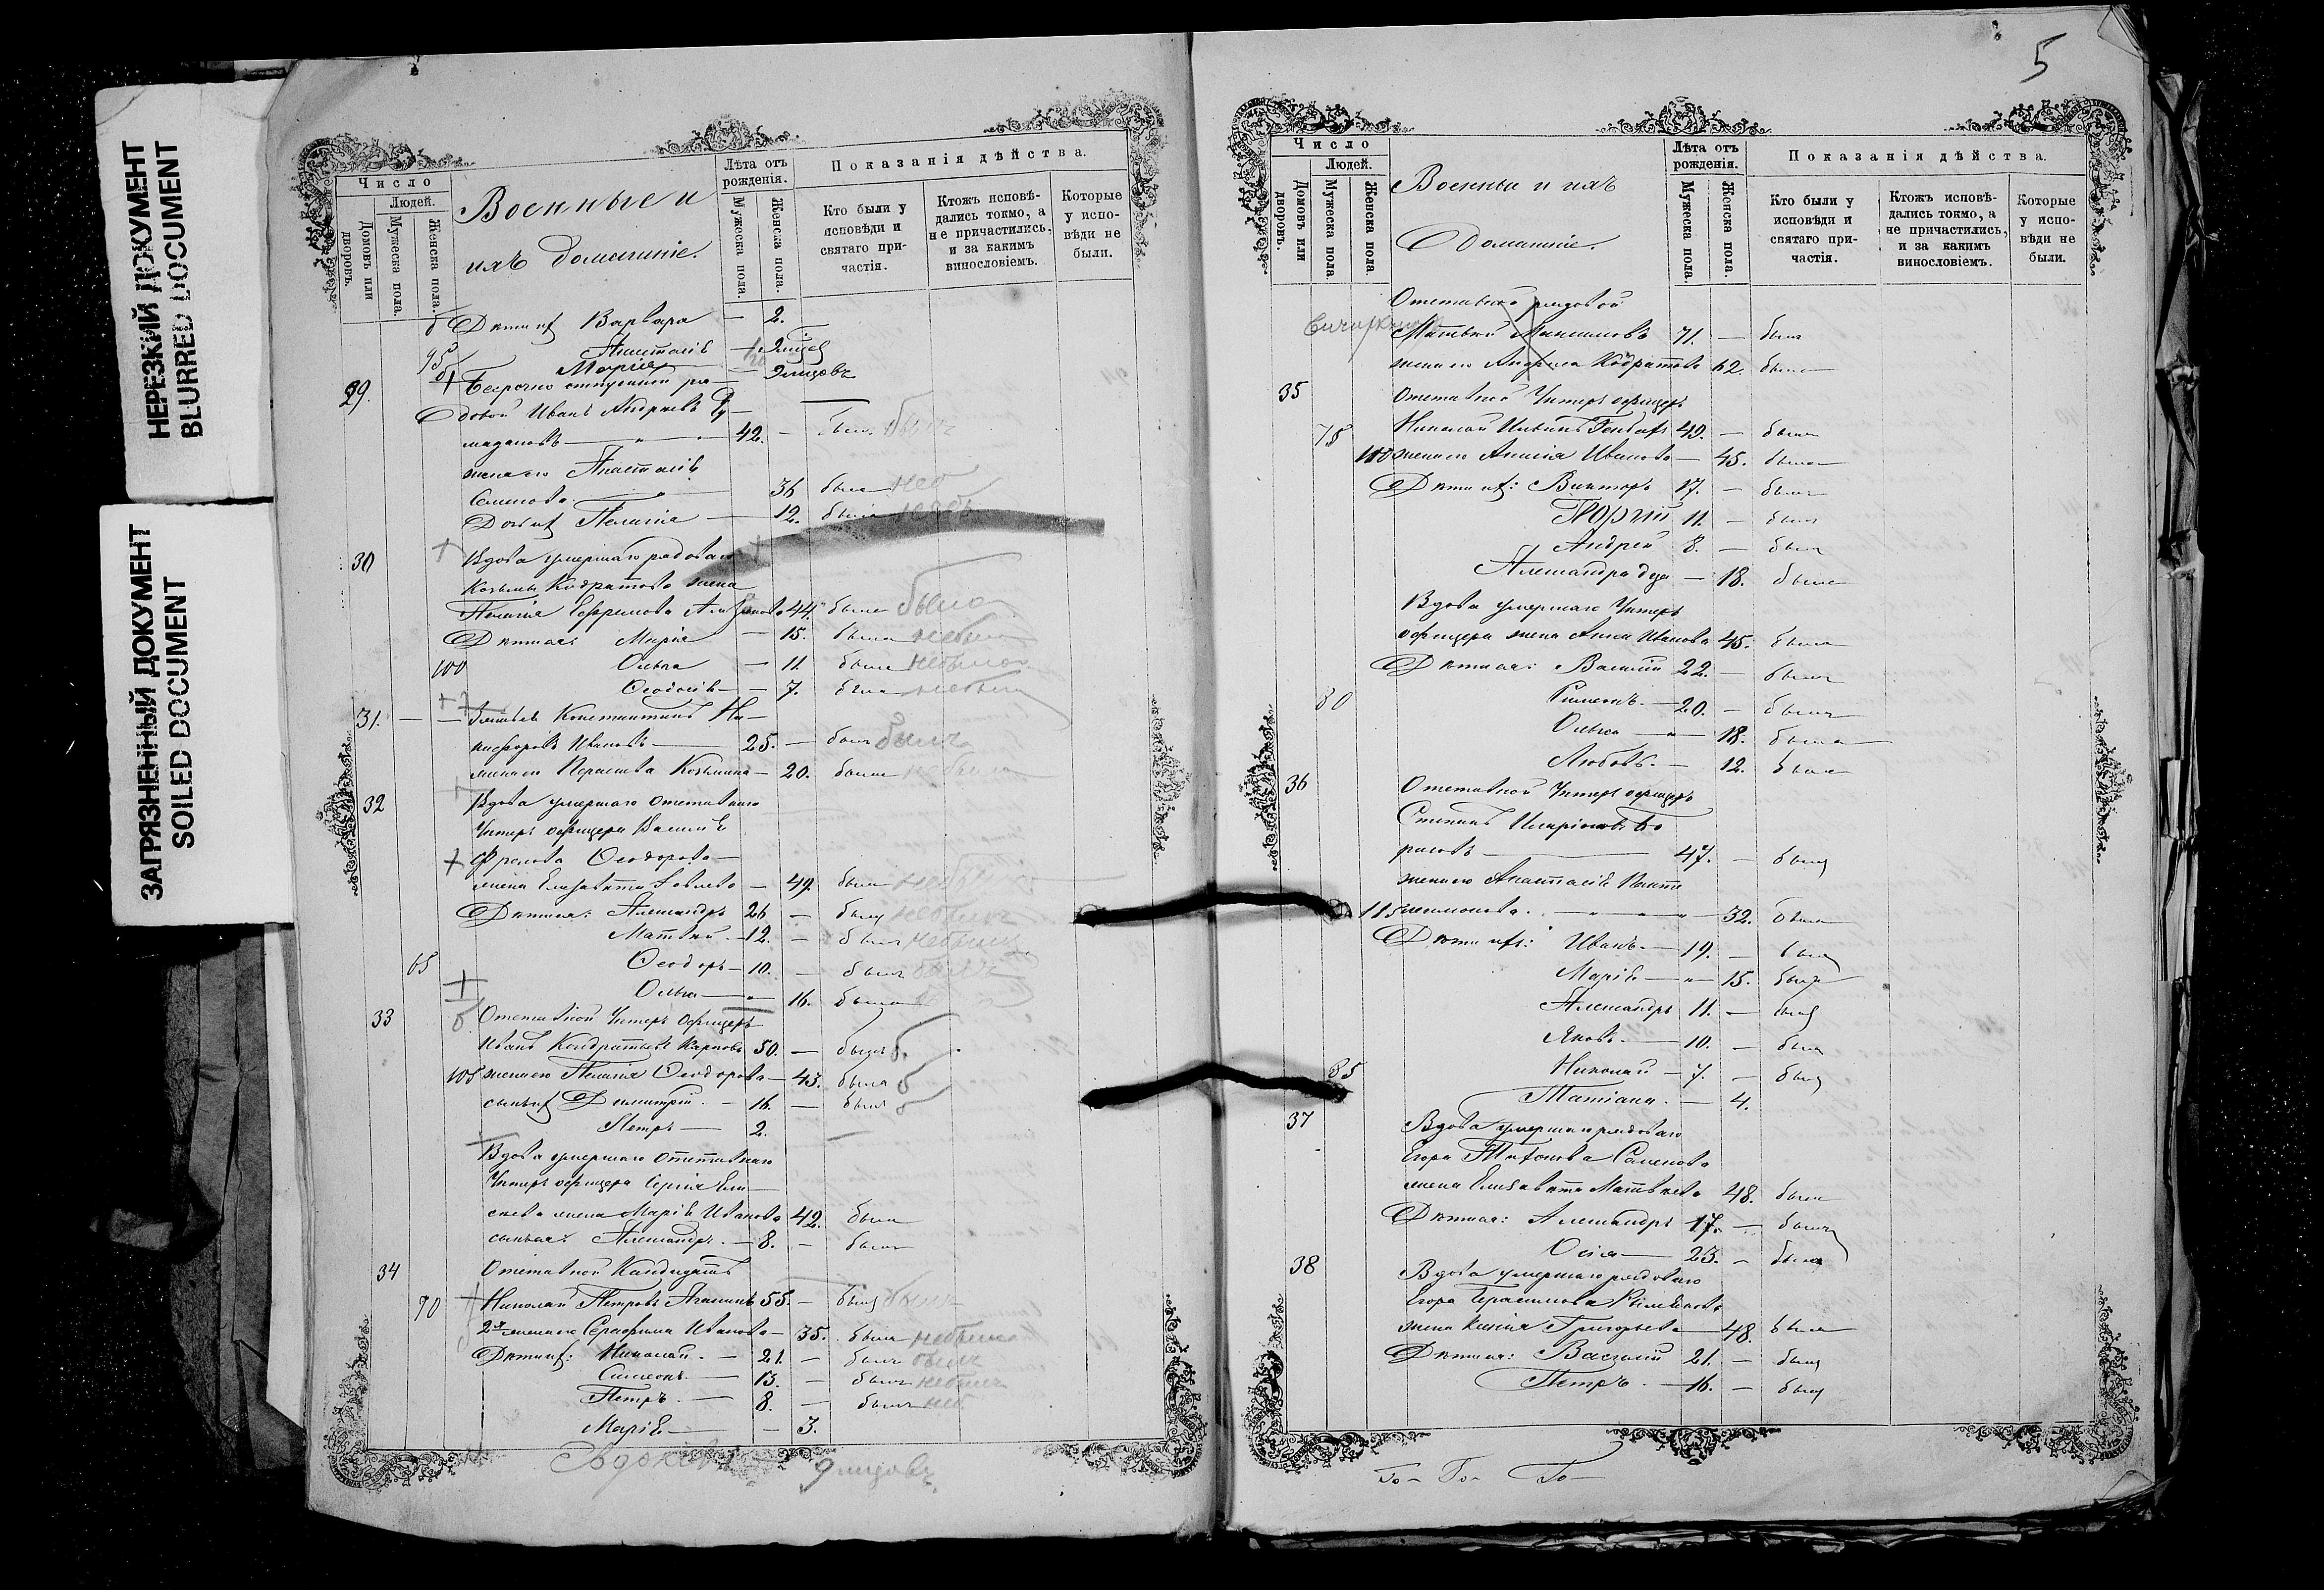 НЕРЕЗКИЙ ДОКУМЕНТ
BLURRED DOCUMENT
ЗАГРЯЗНЕННЫЙ ДОКУМЕНТ
SOILED DOCUMENT
Число
Людей.
Домовъ или дворовъ.
Мужеска пола.
Женска пола.
Военные и
ихъ домашніе.
Лѣта отъ рожденія.
Мужеска пола.
Женска пола.
Показанія дѣйства.
Кто были у исповѣди и святаго причастія.
Ктожъ исповѣдались токмо, а не причастились, и за какимъ винословіемъ.
Которые у исповѣди не были.
Дѣти их Варвара — 2.
95 Анастасія
Марія 9 мѣсяцовъ
29. Безсрочно отпускной ря-
довой Иванъ Андреевъ
42. — былъ былъ
жена его Анастасія
Семенова 36 была
Дочь их Пелагія — 12. была
30 Вдова умершаго рядоваго
Козьмы Кодратова жена
Пелагія Ефремова 44. была была
Дѣти ея: Марія — 15. была небыла
100 Ольга — 11 была небыла
Ѳеодосія — 7. была небыла
31. — Константинъ Ни-
кифоровъ Ивановъ — 25. — былъ былъ
жена его Параскева Козьмина — 20. была небыла
32 Вдова умершаго отставнаго
Унтеръ офицера Василія
Фролова Ѳеодорова
жена Елизавета — 49. была небыла
Дѣти ея: Александръ 26 — былъ небылъ
Матвѣй — 12. — былъ небылъ
65 Ѳеодоръ — 10. — былъ былъ
Ольга — 16. была
33 Отставной Унтеръ Офицеръ
Иванъ Кондратьевъ Карповъ 50. — былъ б.
105 жена его Пелагія Ѳеодорова — 43. была б
сынъ их Димитрій — 16. — былъ б
Петръ — 2. —
Вдова умершаго отставнаго
Унтеръ офицера Сергія Ели-
сеева жена Марія Иванова 42. была
сынъ ея: Александръ — 8. — былъ
34 Отставной Кандидатъ
70 Николай Петровъ 55. — былъ былъ
2я жена его Серафима Иванова — 35. была небыла
Дѣти их: Николай — 21. — былъ былъ
Симеонъ — 13. — былъ небылъ
Петръ — 8. — былъ неб
Марія — — 3.
9 мѣсяцовъ
5
Число
Людей.
Домовъ или дворовъ.
Мужеска пола
Женска пола.
Военные и ихъ
домашніе.
Лѣта отъ рожденія.
Мужеска пола
Женска пола.
Показанія дѣйства.
Кто были у исповѣди и святаго причастія.
Ктожъ исповѣдались токмо, а не причастились, и за какимъ винословіемъ.
Которые у исповѣди не были.
Отставной рядовой
Матвѣй Максимовъ 71. — былъ
жена его Кодратова 62. была
35 Отставной Унтеръ офицеръ
75 Николай Ильинъ 49. — былъ
110 жена его Анисія Иванова — 45. была
Дѣти их: Викторъ 17. — былъ
Георгій 11. — былъ
Андрей 8. — былъ
Александра — 18. была
Вдова умершаго Унтеръ
офицера жена Анна Иванова 45. была
Дѣти ея: Василій 22. — былъ
80 Симеонъ — 20. — былъ
Ольга — 18. была
Любовь — 12. была
36 Отставной Унтеръ офицеръ
Степанъ Иларіоновъ Бо-
рисовъ — 47. — былъ
жена его Анастасія Панте-
115 леимонова — 32. была
Дѣти их: Иванъ — 19. — былъ
Марія — 15. была
Александръ 11. — былъ
Яковъ — 10. — былъ
85 Николай — 7. — былъ
Татіана — 4.
37 Вдова умершаго рядоваго
Егора Тихонова Семенова
жена Елизавета Матвѣева 48. была
Дѣти ея: Александръ 17. — былъ
23. — была
38 Вдова умершаго рядоваго
Егора Герасимова
жена Ксенія Григорьева — 48 была
Дѣти ея: Василій 21. — былъ
Петръ — 16. — былъ